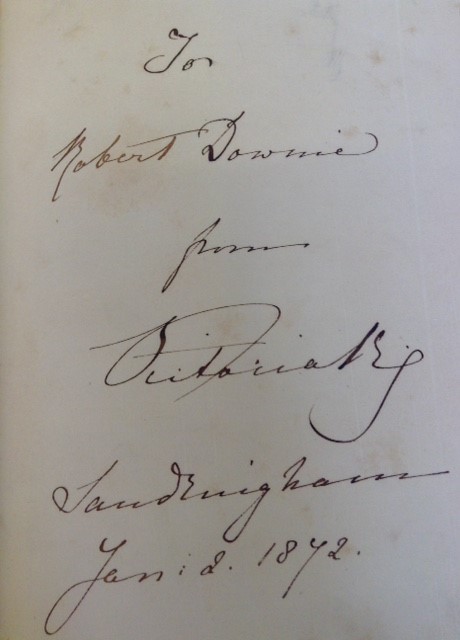 To
Robert Downie
from
Victoria R i g
Sandringham
Jan: 2. 1872.